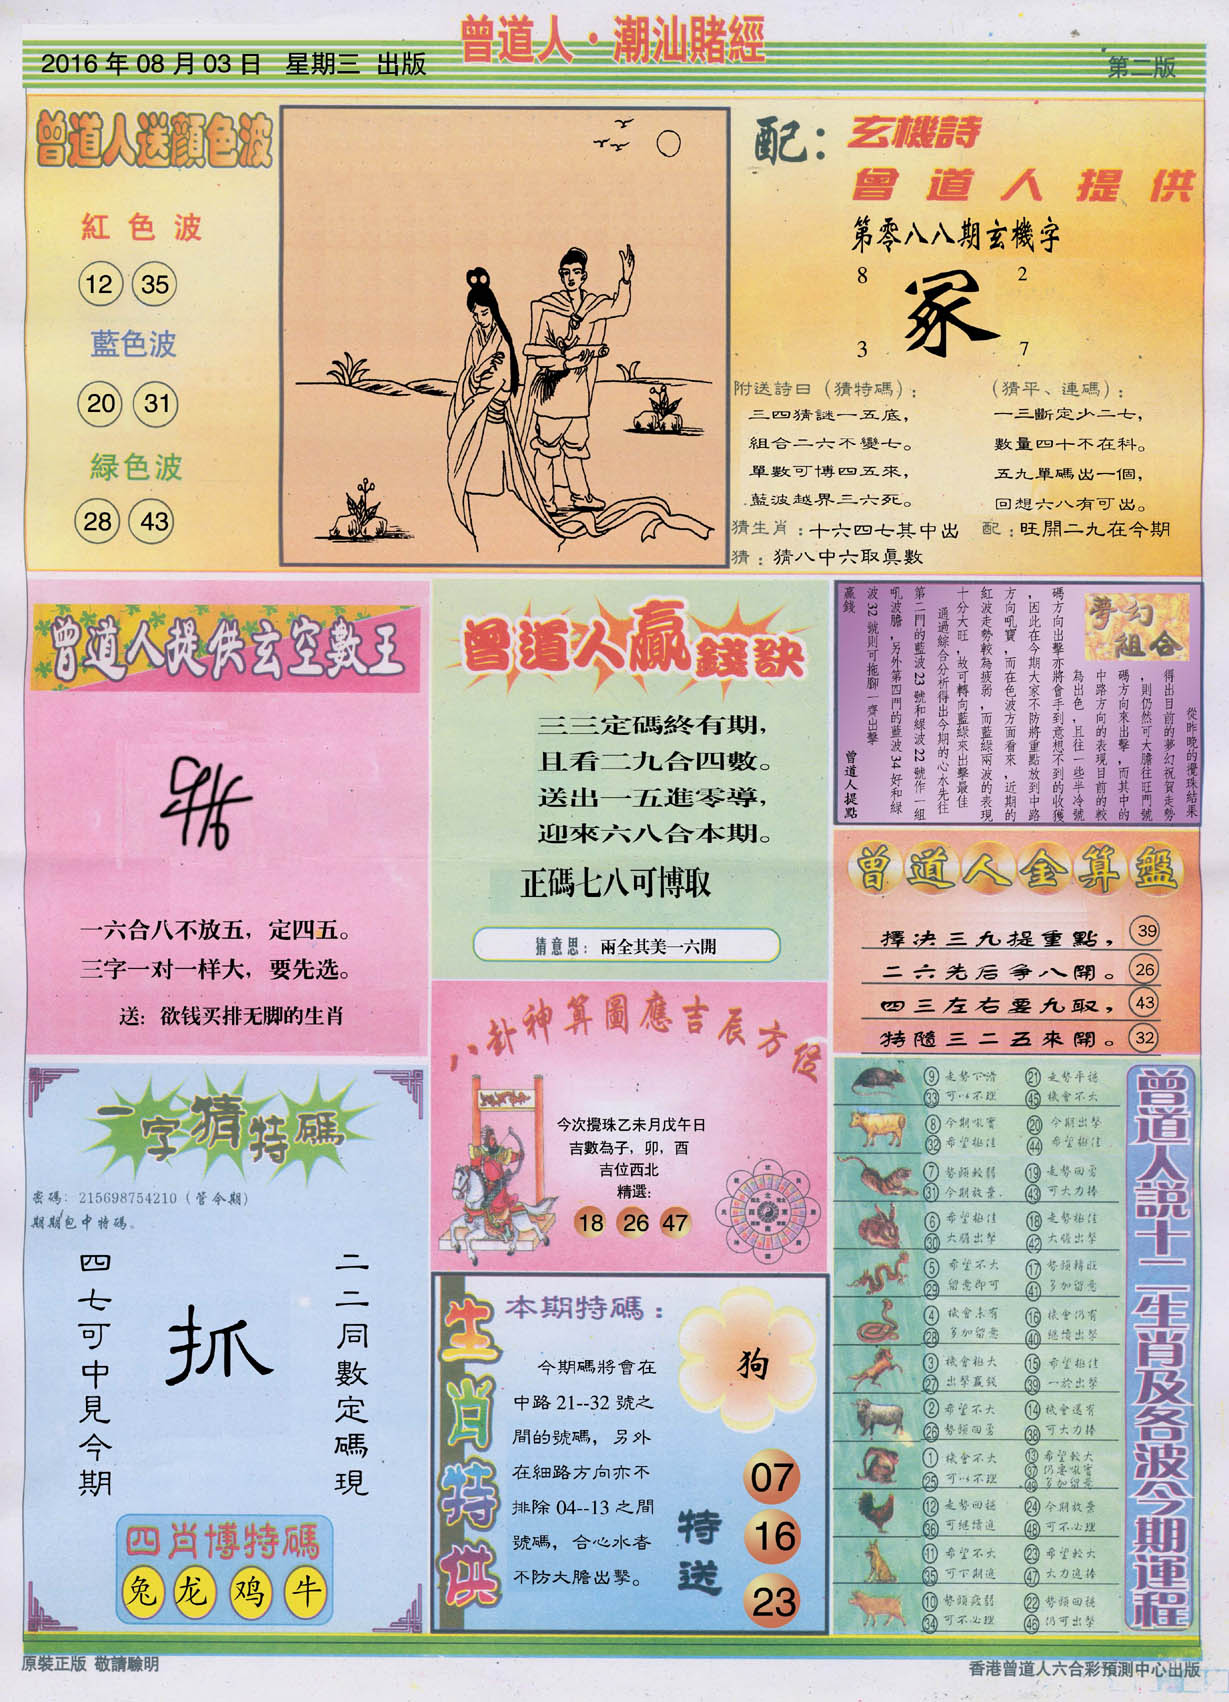 曾道人·潮汕賭經
2016年08月03日 星期三 出版
第二版
曾道人送顏色波
紅色波
12 35
藍色波
20 31
緑色波
28 43
配：
玄機詩
曾道人提供
第零八八期玄機字
8 2
冢
3 7
附送詩曰（猜特碼）：
三四猜謎一五底，
組合二六不變七。
單數可博四五來，
藍波越界三六死。
（猜平、連碼）：
一三斷定少二七，
數量四十不在科。
五九單碼出一個，
回想六八有可出。
猜生肖：十六四七其中出
配：旺開二九在今期
猜：猜八中六取真數
曾道人提供玄空數王
一六合八不放五，定四五。
三字一对一样大，要先选。
送：欲钱买排无脚的生肖
曾道人贏錢訣
三三定碼終有期，
且看二九合四數。
送出一五進零導，
迎來六八合本期。
正碼七八可博取
猜意思：兩全其美一六開
夢幻組合
從昨晚的攪珠結果
得出目前的夢幻祝賀走勢
，則仍然可大膽往旺門號
碼方向來出擊，而其中的
中路方向的表現目前的較
為出色，且往一些半冷號
碼方向出擊亦將會手到意想不到的收獲
，因此在今期大家不防將重點放到中路
方向吼寶，而在色波方面看來，近期的
紅波走勢較為疲弱，而藍綠兩波的表現
十分大旺，故可轉向藍綠來出擊最佳
通過綜合分析得出今期的心水先往
第二門的藍波23號和綠波22號作一組
吼波膽，另外第四門的藍波34好和綠
波32號則可拖腳一齊出擊
贏錢
曾道人提點
曾道人金算盤
擇決三九提重點， 39
二六先后争八開。 26
四三左右要九取， 43
特隨三二五來開。 32
八卦神算圖應吉辰方位
今次攪珠乙未月戊午日
吉數為子，卯，酉
吉位西北
精選：
18 26 47
一字猜特碼
密碼：215698754210（管今期）
期期包中特碼。
四七可中見今期
抓
二二同數定碼現
四肖博特碼
兔 龙 鸡 牛
生肖特供
本期特碼：
今期碼將會在
中路21--32號之
間的號碼，另外
在細路方向亦不
排除04--13之間
號碼，合心水者
不防大膽出擊。
狗
特送
07
16
23
曾道人說十二生肖及各波今期運程
9 走勢下滑 21 走勢平穩
33 可以不理 45 機會不大
8 今期吼寶 20 今期出擊
32 希望極佳 44 希望極佳
7 勢頭較弱 19 走勢回勇
31 今期放棄 43 可大力捧
6 希望極佳 18 走勢極佳
30 大膽出擊 42 大膽出擊
5 希望不大 17 勢頭轉旺
29 留意即可 41 多加留意
4 機會未有 16 機會仍有
28 多加留意 40 繼續出擊
3 機會極大 15 希望極佳
27 出擊贏錢 39 一於出擊
2 希望不大 14 機會還有
26 勢頭回勇 38 可大力捧
1 機會不大 13 希望較大
25 可以不理 37 仍要吼寶
49 多加留意
12 走勢回穩 24 今期放棄
36 可繼續追 48 可不必理
11 希望不大 23 希望較大
35 可下期追 47 大力追捧
10 勢頭疲弱 22 勢頭回穩
34 可不必理 46 仍可出擊
原裝正版 敬請驗明
香港曾道人六合彩預測中心出版